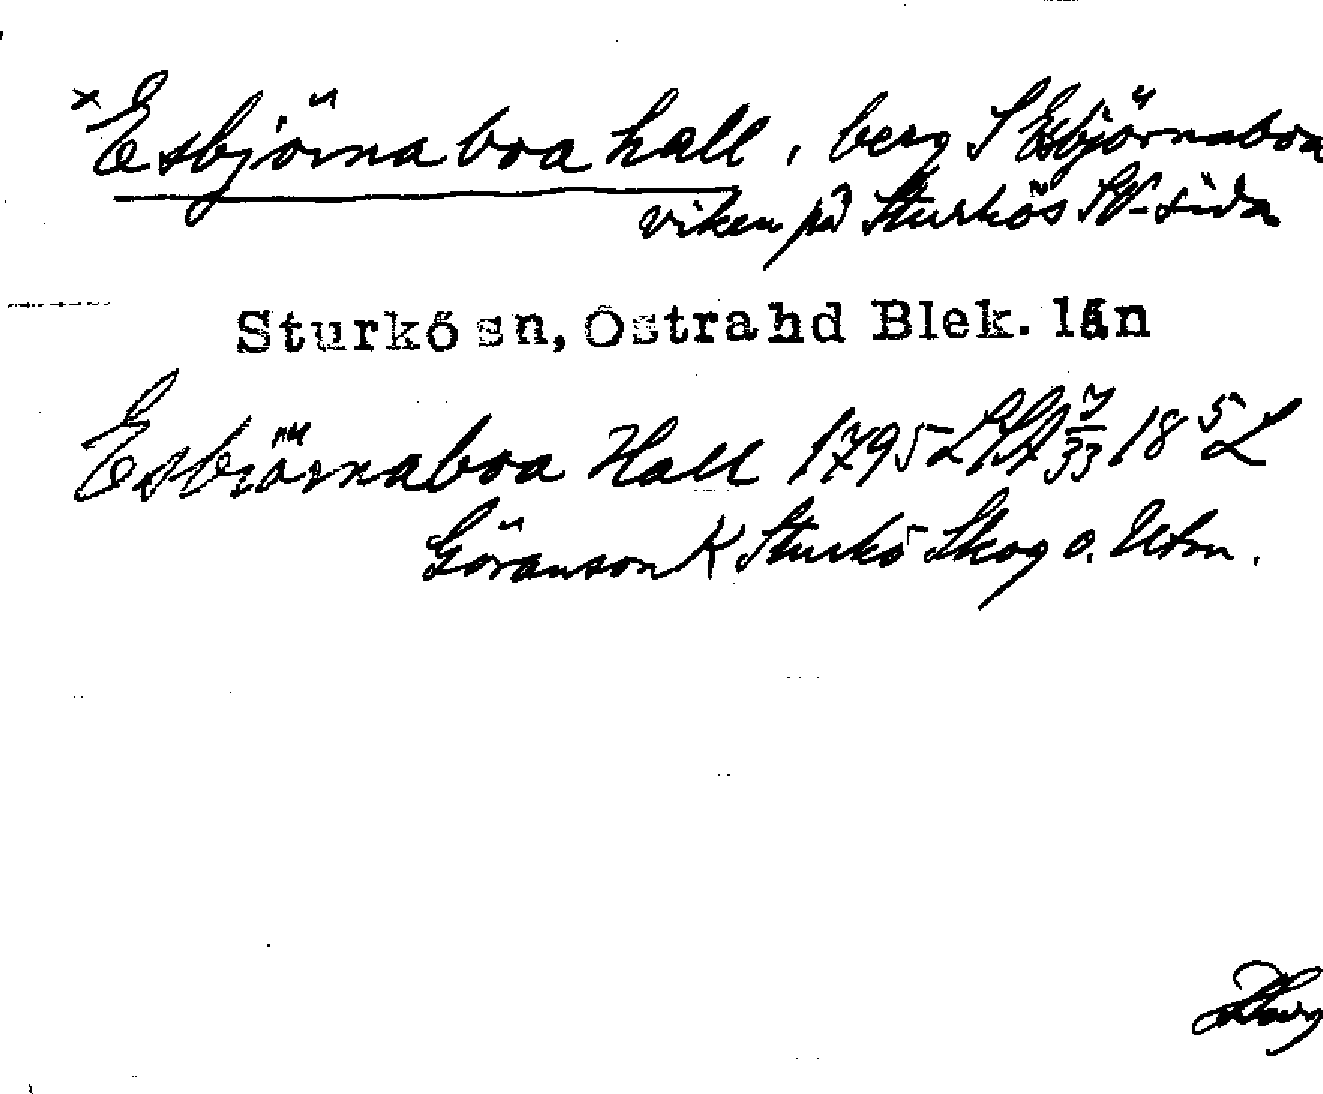 × Esbjörnaboa hall, berg S Esbjörnaboa
viken på Sturkös SV-sida
Sturkö sn, Östra hd Blek. län
Esbiörnaboa Hall 1795 LSA 7/33 18 5 L
Göranson K Sturkö Skog o. Utm.